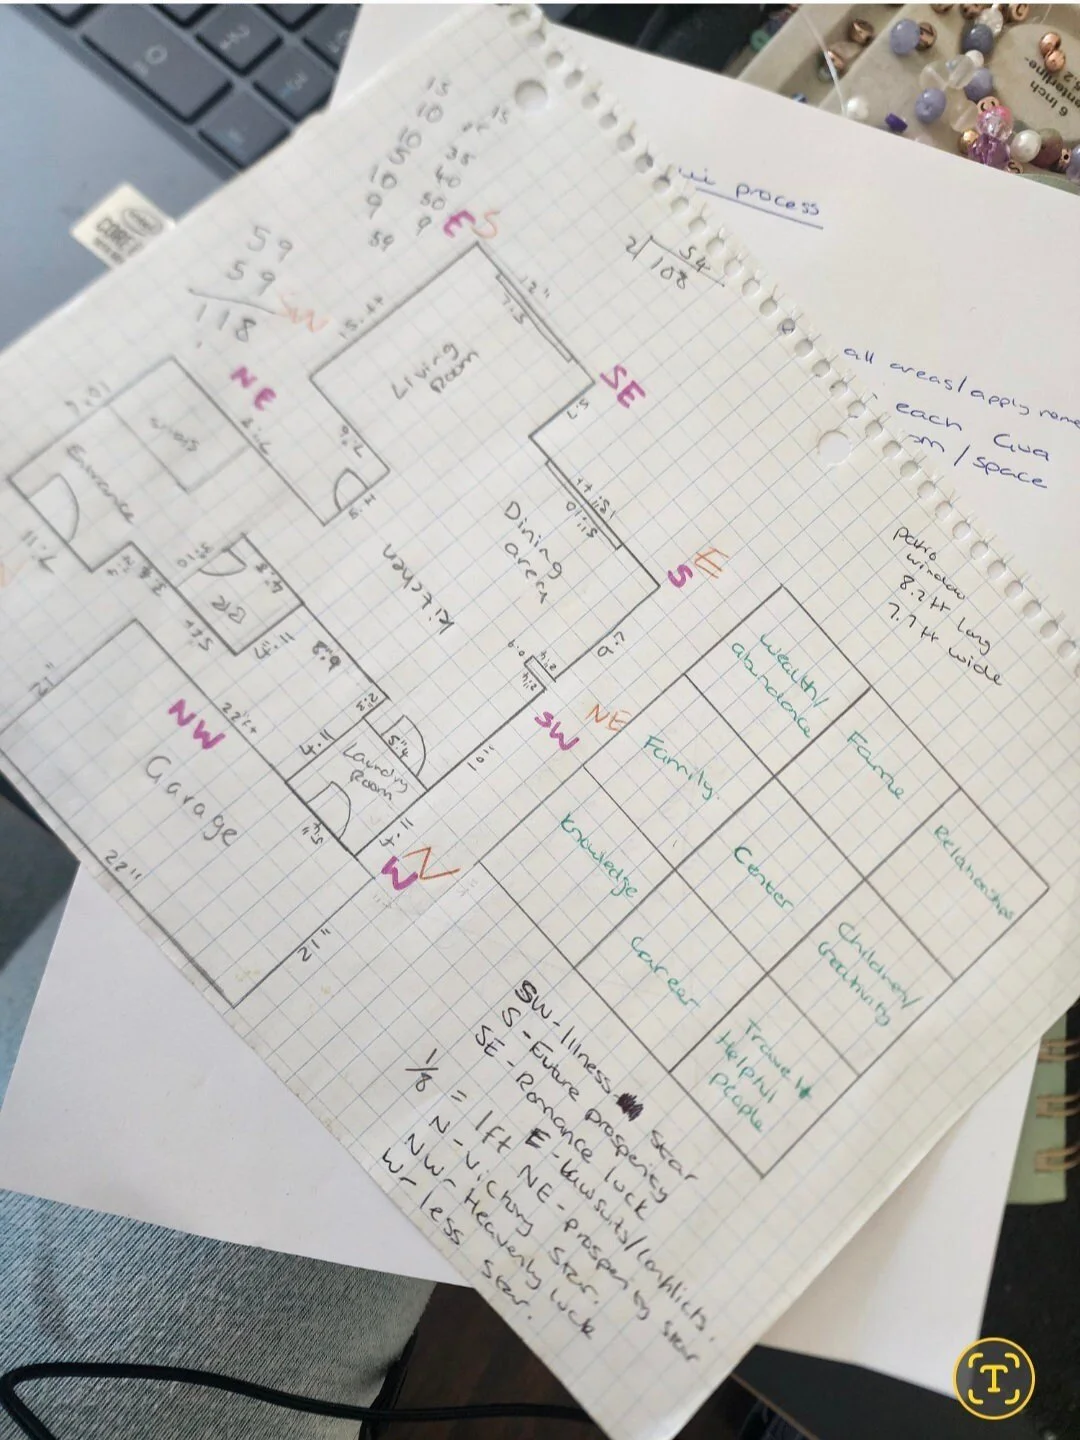 15
10
10
5
10
9
59
15
35
40
50
9
59
59
118
SW
E
S
54
2
108
ui process
all areas/apply
each Gua
/space
6 inch
5.2
CORE
patio
window
8.2 ft long
7.7 ft wide
NE
SE
S
E
SW
NE
W
N
NW
15 ft
12"
7.5
Living
Room
Entrance
Dining
area
Kitchen
B/R
Laundry
Room
5"4
10"
22 ft
Garage
22"
21"
21"
wealth/
abundance
Family
Fame
Knowledge
Center
Relationships
Career
Children/
Creativity
Travel +
Helpful
people
SW - Illness star
S - Future prosperity
SE - Romance luck
E - Lawsuits/Conflicts.
1/8 = 1ft NE - prosperity star
N - Victory Star.
NW - Heavenly luck
W - less star.
T